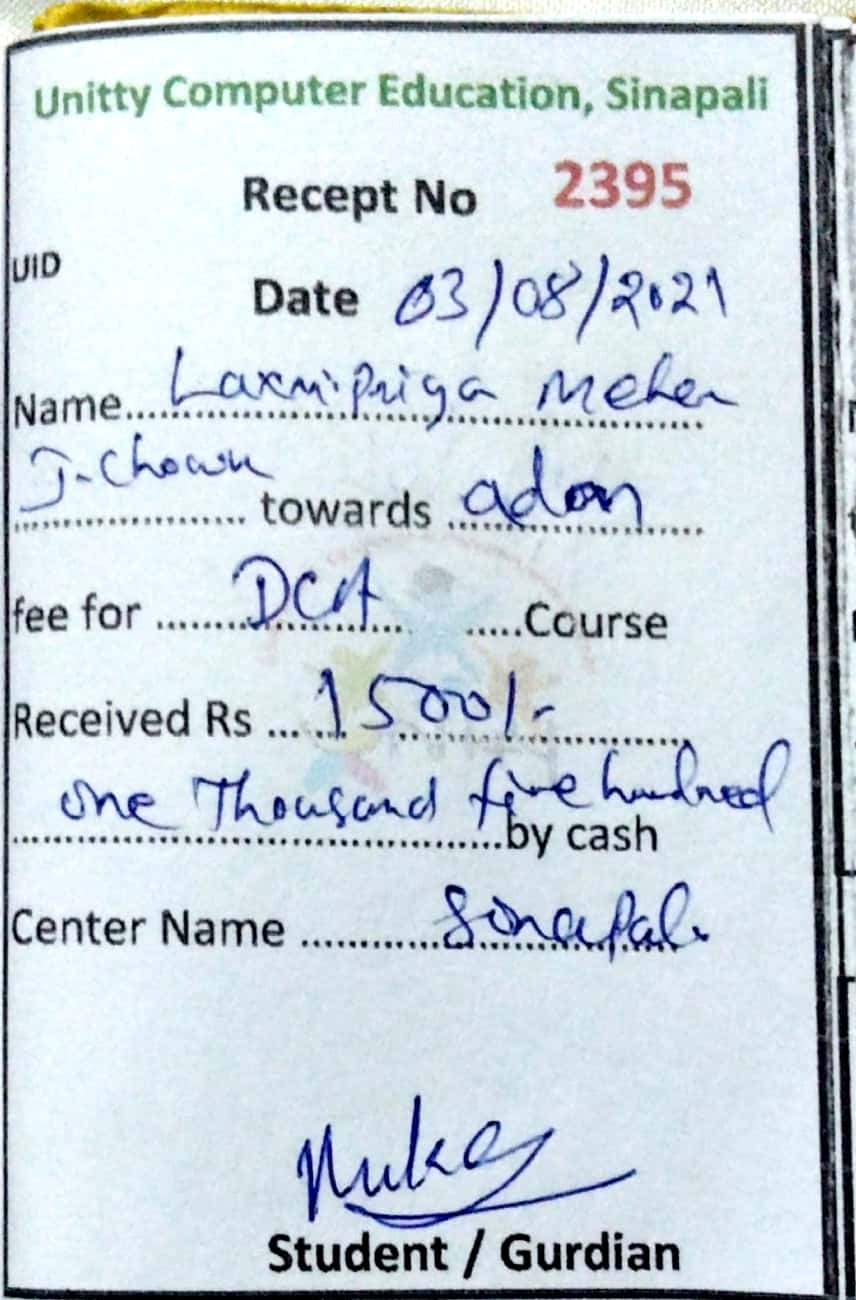 Unitty Computer Education, Sinapali
Recept No 2395
UID
Date 03/08/2021
Name..... Laxmipriya Meher
J-Chowk
.................. towards adon
fee for ....... DCA ..... Course
Received Rs ... 1500/-
one Thousand five hundred
by cash
Center Name ............ Sinapali
Student / Gurdian